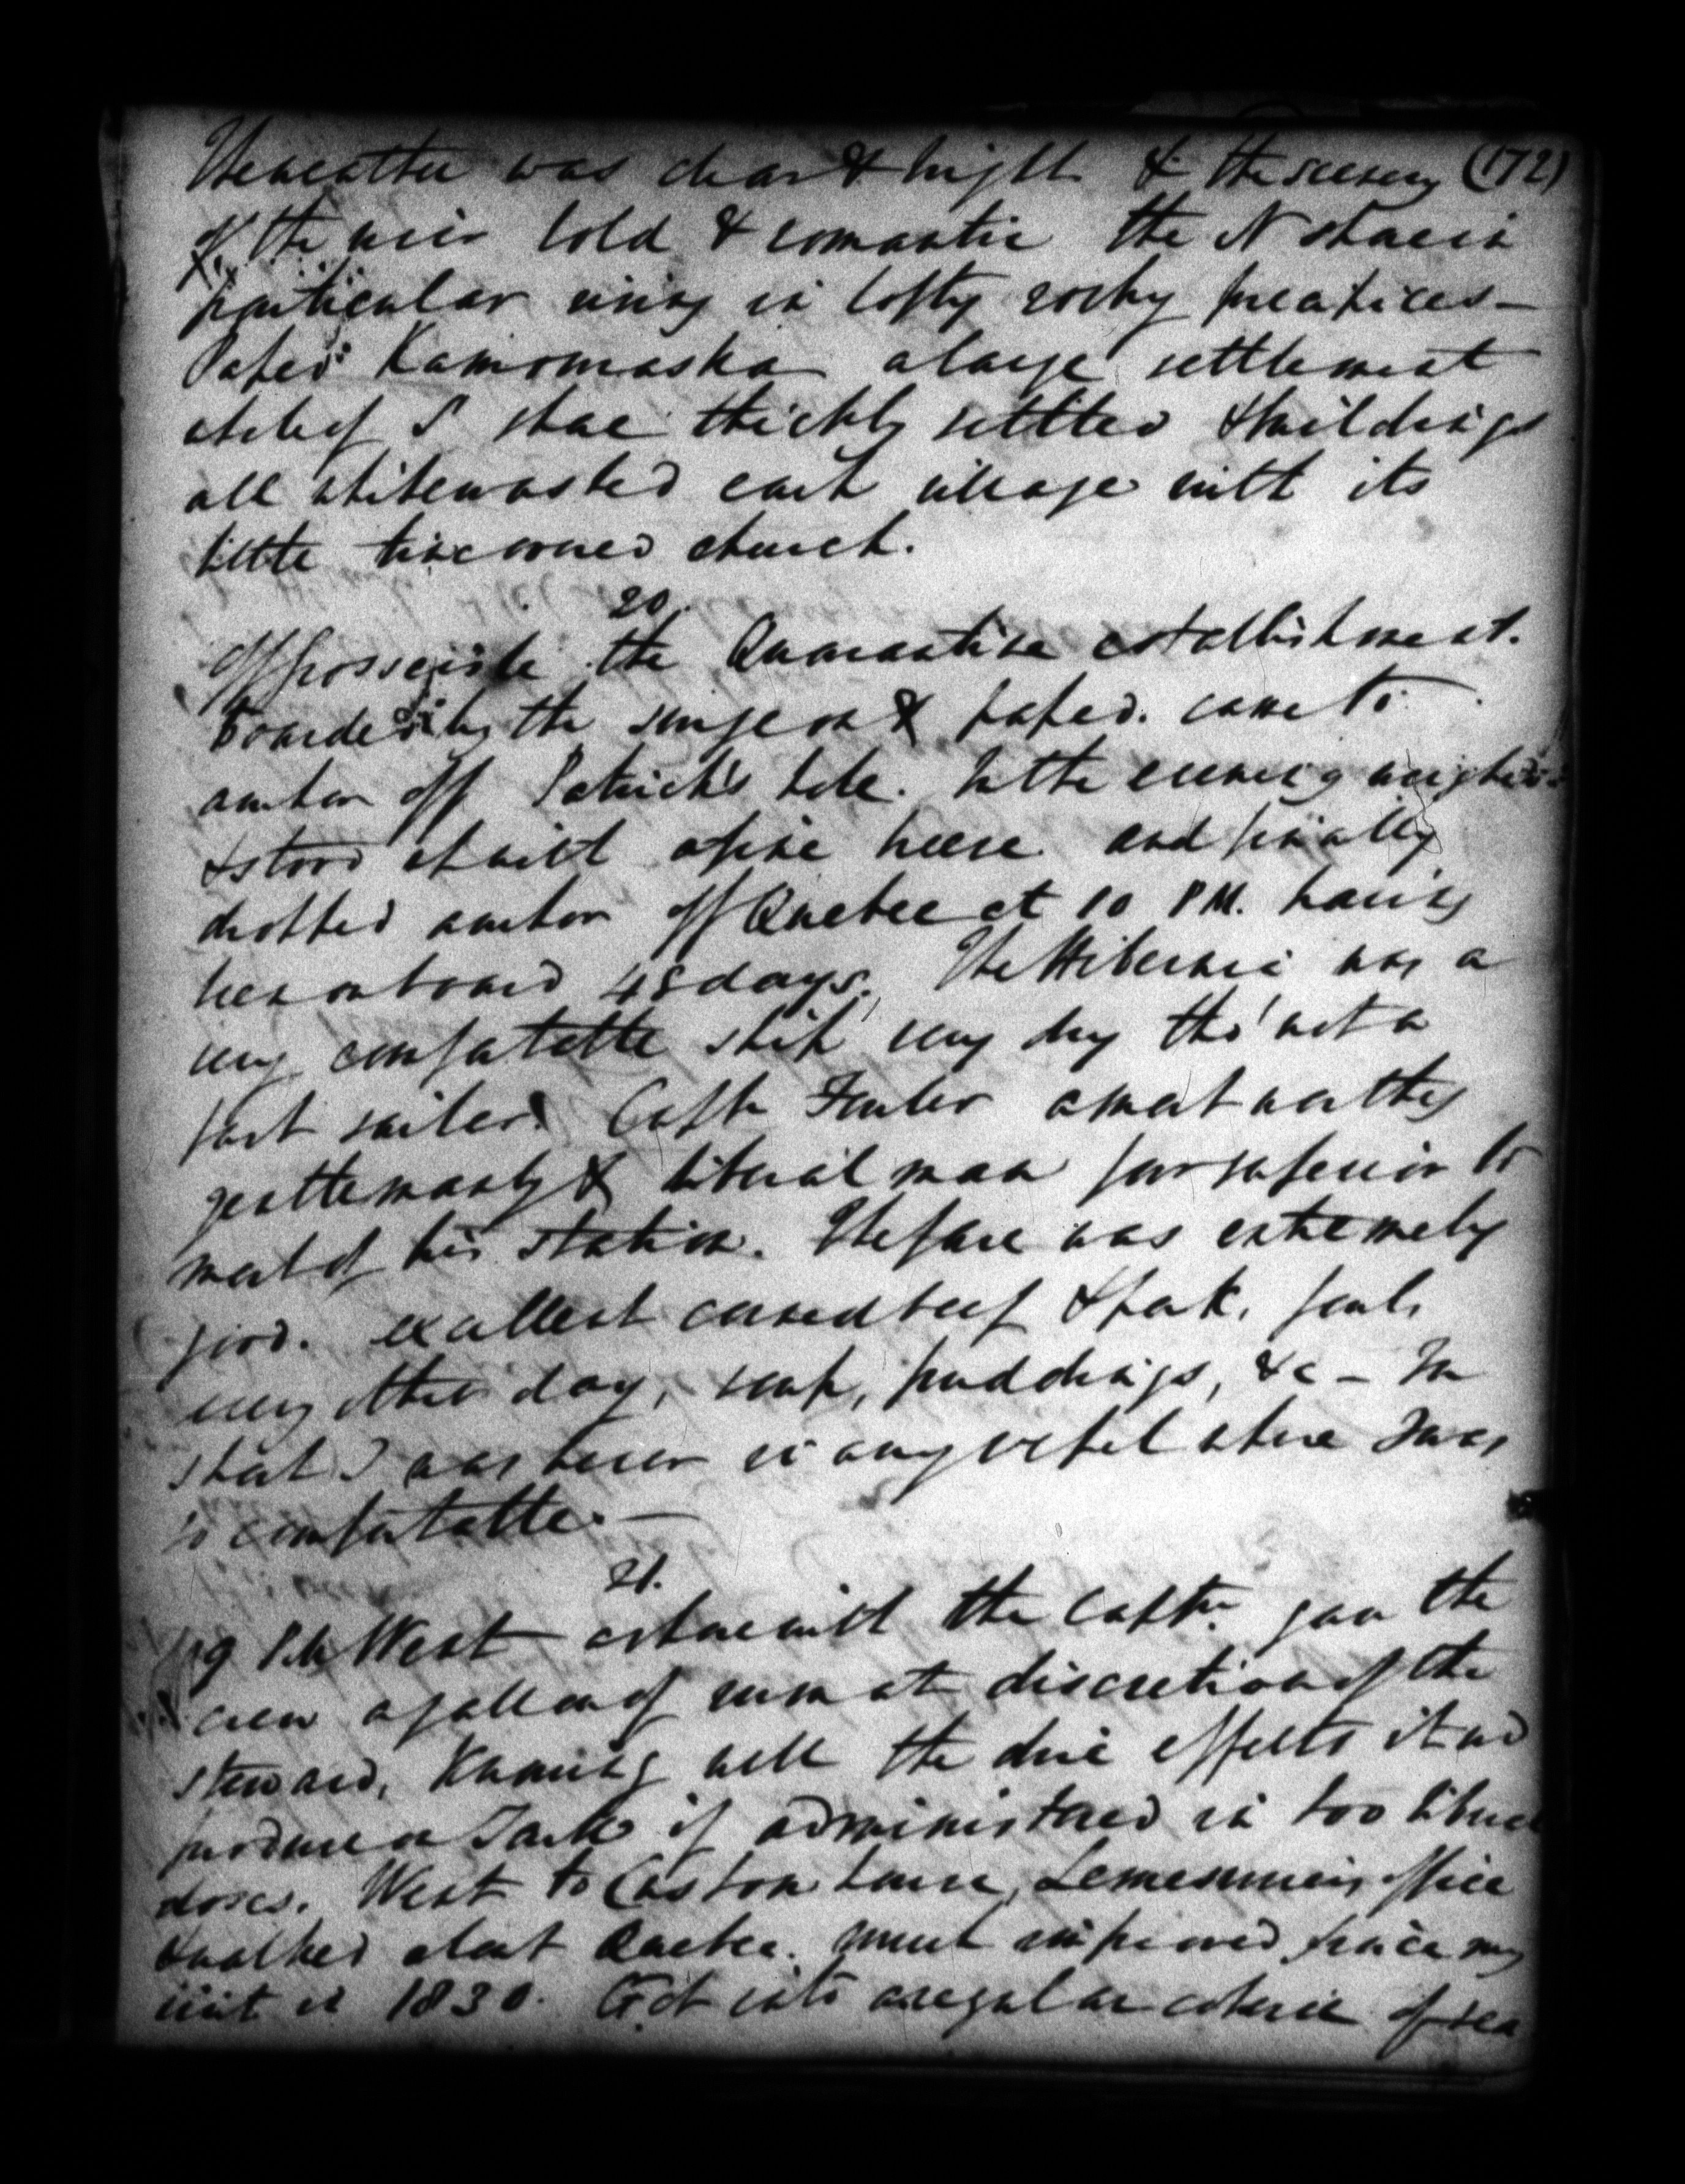 The weather was clear & bright & the scenery (172)
of the river bold & romantic the N shore in
particular rising in lofty rocky precipices—
Passed Kamomaska a large settlement
whole of S shore thickly settled & buildings
all whitewashed each village with its
little tin covered church.
20.
Opposite the Quarantine establishment.
Boarded by the surgeon & passed. came to
anchor off Patrick's hole. In the evening weighed
& stood up with a fine breeze and finally
dropped anchor off Quebec at 10 PM. having
been on board 48 days. The Hibernia was a
very comfortable ship very dry tho' not a
fast sailer. Captn a most worthy
gentlemanly & liberal man far superior to
most of his station. The fare was extremely
good. excellent corned beef & pork, fowls
every other day, soup, puddings, &c — In
short I was never in any vessel where I was
so comfortable.—
21.
9 Went ashore with the Captn. gave the
crew a gallon of rum at discretion of the
steward, Knowing well the dire effects it wd
produce on Jack if administered in too liberal
doses. Went to Custom house, Lemesurier's office
& walked about Quebec. much improved since my
visit in 1830. Got into a regular coterie of sea